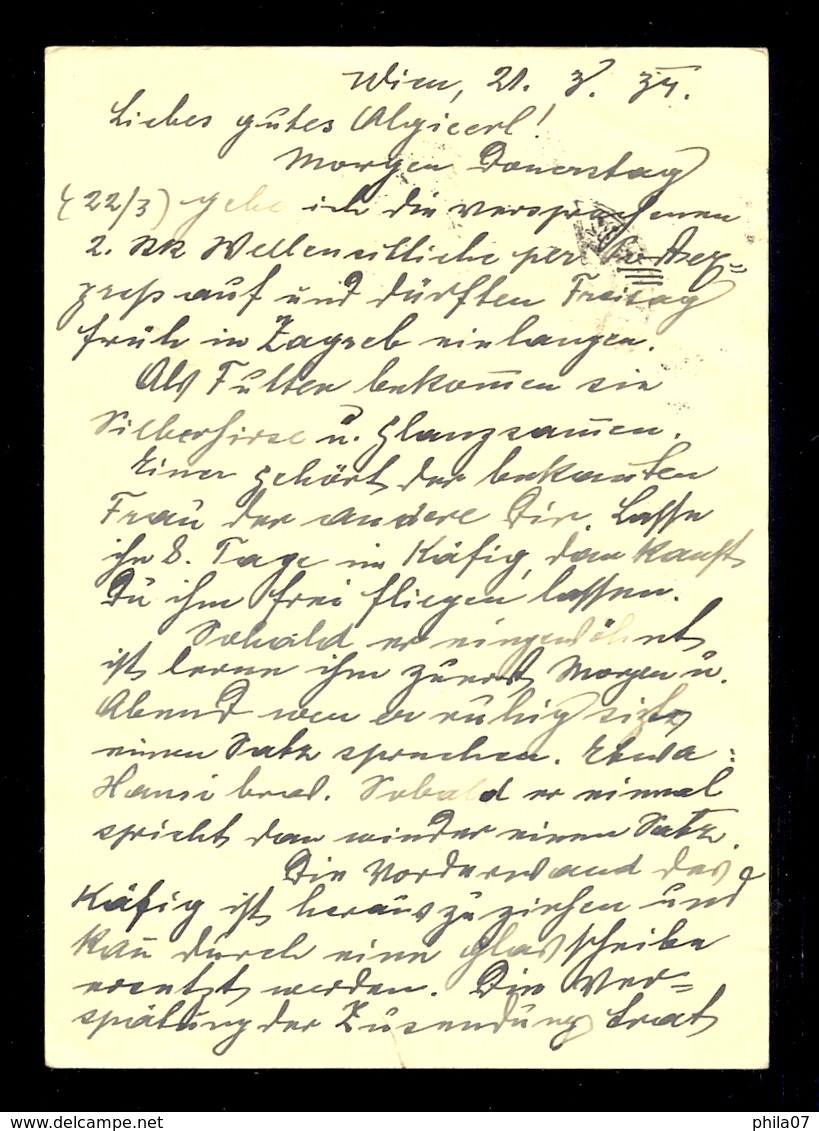 Wien, 21. 3. 34.
Liebes gutes
Morgen Donerstag
(22/3) gebe ich die versprochenen
2. Stk Wellensittiche per
preß auf und dürften Freitag
früh in Zagreb einlangen.
Als Futter bekom̅en sie
Silberhirse u. Glanzsam̅en.
Einer gehört der bekanten
Frau der andere Dir. Lasse
ihn 8. Tage im Käfig, dan kanst
Du ihm frei fliegen lassen.
Sobald er eingewöhnt
ist lerne ihm zuerst Morgen u.
Abend wen er ruhig sitzt
einen Satz sprechen. Etwa:
Hansi brav. Sobald er einmal
spricht dan wieder einen Satz.
Die Vorderwand des
Käfig ist herauszuziehen und
kan̅ durch eine Glasscheibe
ersetzt werden. Die Ver=
spätung der Zusendung trat
phila07